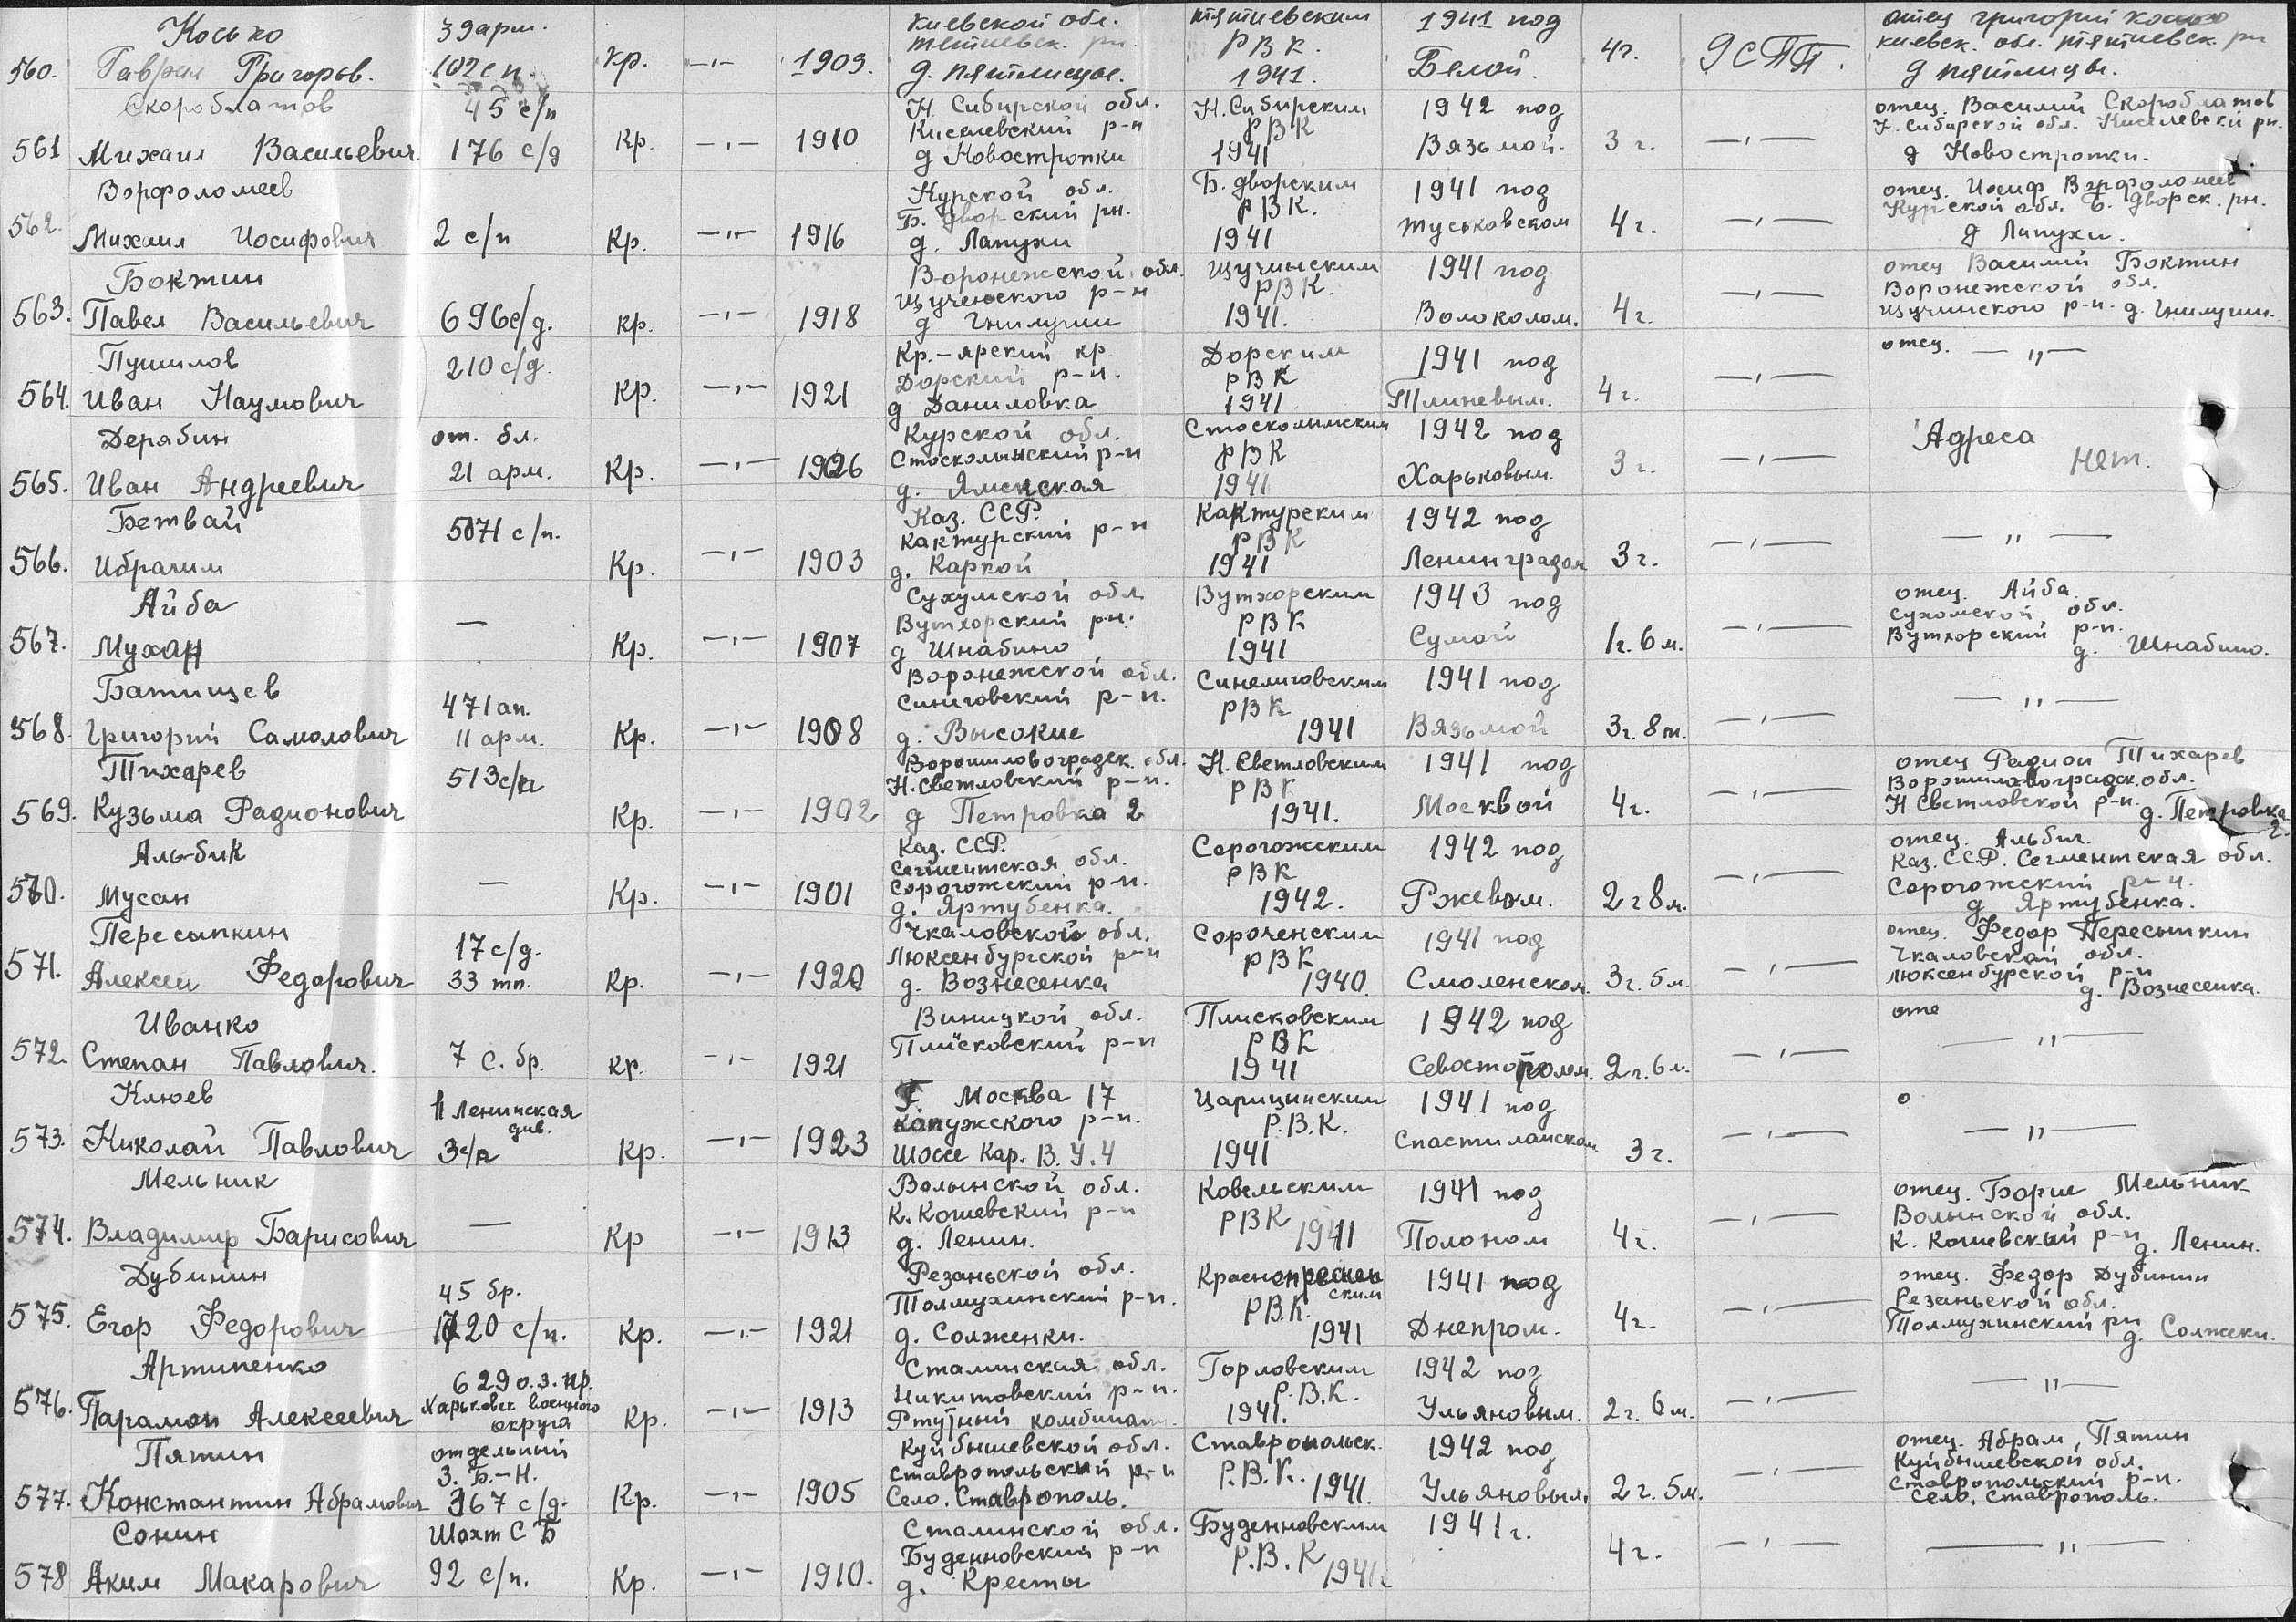 Косько 39 арм. Киевской обл. тятиевским 1941 под отец Григорий Косько
560. Гаврил Григорьв. 102 с п. Кр. —„— 1909. тетиевск. рн. РВК. Белой. 4г. 9 СПП. Киевск. обл. тятиевск. рн
д. пятлицы. 1941. д пятлицы.
Скороблатов 45 с/п Н. Сибирской обл. Н. Сибирским 1942 под отец. Василий Скороблатов
561 Михаил Васильевич. 176 с/д Кр. —„— 1910 Киселевский р-н РВК Вязьмой. 3 г. —„— Н. Сибирской обл. Киселевский рн.
д Новостропки 1941 д Новостропки.
Ворфоломеев Курской обл. Б. дворским 1941 под отец. Иосиф Ворфоломеев
562. Михаил Иосифович 2 с/п Кр. —„— 1916 Б. дворский рн. РВК. Туськовском 4 г. —„— Курской обл. Б. дворск. рн.
д. Лапухи 1941 д Лапухи.
Боктин Воронежской обл. Щучинским 1941 под отец Василий Боктин
563. Павел Васильевич 696 с/д. Кр. —„— 1918 Щученского р-н РВК. Волоколом. 4г. —„— Воронежской обл.
д Гнилуши 1941. Щучинского р-н. д. Гнилуши.
Пушилов 210 с/д. Кр.-ярский кр Дорским 1941 под отец. —„—
564. Иван Наумович Кр. —„— 1921 Дорский р-н. РВК Тлиневым. 4 г. —„—
д Даниловка 1941
Дерябин от. бл. Курской обл. Стоскольмским 1942 под Адреса
565. Иван Андреевич 21 арм. Кр. —„— 1926 Стоскольнский р-н РВК Харьковым. 3 г. —„— нет.
д. Ямская 1941
Бетвай 5071 с/п. Каз. ССР. Кактурским 1942 под
566. Ибрагим Кр. —„— 1903 Кактурский р-н РВК Ленинградом 3 г. —„— —„—
д. Каркой 1941
Айба Сухумской обл Вутхорским 1943 под отец. Айба.
567. Мухан — Кр. —„— 1907 Вутхорский рн. РВК Сумой 1г. 6 м. —„— Сухомской обл.
д Шнабино 1941 Вутхорский р-н. д. Шнабино.
Батищев 471 ап. Воронежской обл. Синелиговским 1941 под
568. Григорий Самолович 11 арм. Кр. —„— 1908 Синиговский р-н. РВК Вязьмой 3г. 8 м. —„— —„—
д. Высокие 1941
Тихарев 513 с/п Ворошиловоградск. обл. Н. Светловским 1941 под отец Радион Тихарев
569. Кузьма Радионович Кр. —„— 1902 Н. Светловский р-н. РВК Москвой 4г. —„— Ворошиловоградск. обл.
д Петровка 2 1941. Н Светловской р-н. д. Петровка 2.
Аль-бик Каз. ССР. Сорогожским 1942 под отец. Альбик.
570. Мусан — Кр. —„— 1901 Сегментская обл. РВК Ржевом. 2 г 8 м. —„— Каз. ССР. Сегментская обл.
Сорогожский р-н. 1942. Сорогожский р-н.
д. Яртубенка. д Яртубенка.
Пересыпкин 17 с/д. Чкаловской обл. Сороченским 1941 под отец. Федор Пересыпкин
571. Алексей Федорович 33 тп. Кр. —„— 1920 Люксенбургской р-н РВК Смоленском. 3 г. 5 м. —„— Чкаловской обл.
д. Вознесенка 1940. Люксенбурской р-н д. Вознесенка.
Иванко Виницкой обл. Плисковским 1942 под оте
572. Степан Павлович. 7 с. бр. Кр. —„— 1921 Плисковский р-н РВК Севостополем. 2 г. 6 м. —„— —„—
1941
Клюев 11 Ленинская див. Г. Москва 17 Царицинским 1941 под о
573. Николай Павлович 3 с/п Кр. —„— 1923 Капужского р-н. Р.В.К. Спастиланском 3 г. —„— —„—
Шоссе Кар. В. У. 4 1941
Мельник Волынской обл. Ковельским 1941 под отец. Борис Мельник
574. Владимир Барисович — Кр —„— 1913 К. Кошевский р-н РВК Полоном 4 г. —„— Волынской обл.
д. Ленин. 1941 К. Кошевский р-н д. Ленин.
Дубинин 45 бр. Резаньской обл. Краснопресненским 1941 под отец. Федор Дубинин
575. Егор Федорович 1720 с/п. Кр. —„— 1921 Толмухинский р-н. РВК. Днепром. 4г. —„— Резаньской обл.
д. Солженки. 1941 Толмухинский рн д. Солжеки.
Артипенко 629 о.з.пр. Сталинская обл. Горловским 1942 под
576. Парамон Алексеевич Харьковск военного округа Кр. —„— 1913 Никитовский р-н. Р.В.К. Ульяновым. 2 г. 6 м. —„— —„—
Ртутный комбинат. 1941.
Пятин отдельный Куйбышевской обл. Ставропольск. 1942 под отец. Абрам Пятин
577. Константин Абрамович З. Б.-Н. 367 с/д. Кр. —„— 1905 Ставропольский р-н Р.В.К. 1941. Ульяновым. 2 г. 5 м. —„— Куйбышевской обл.
Село. Ставрополь. Ставропольский р-н. Село. Ставрополь.
Сонин Шахт С Б Сталинской обл. Буденновским 1941 г.
578 Аким Макарович 92 с/п. Кр. —„— 1910. Буденновский р-н Р.В.К 1941. 4 г. —„— —„—
д. Кресты